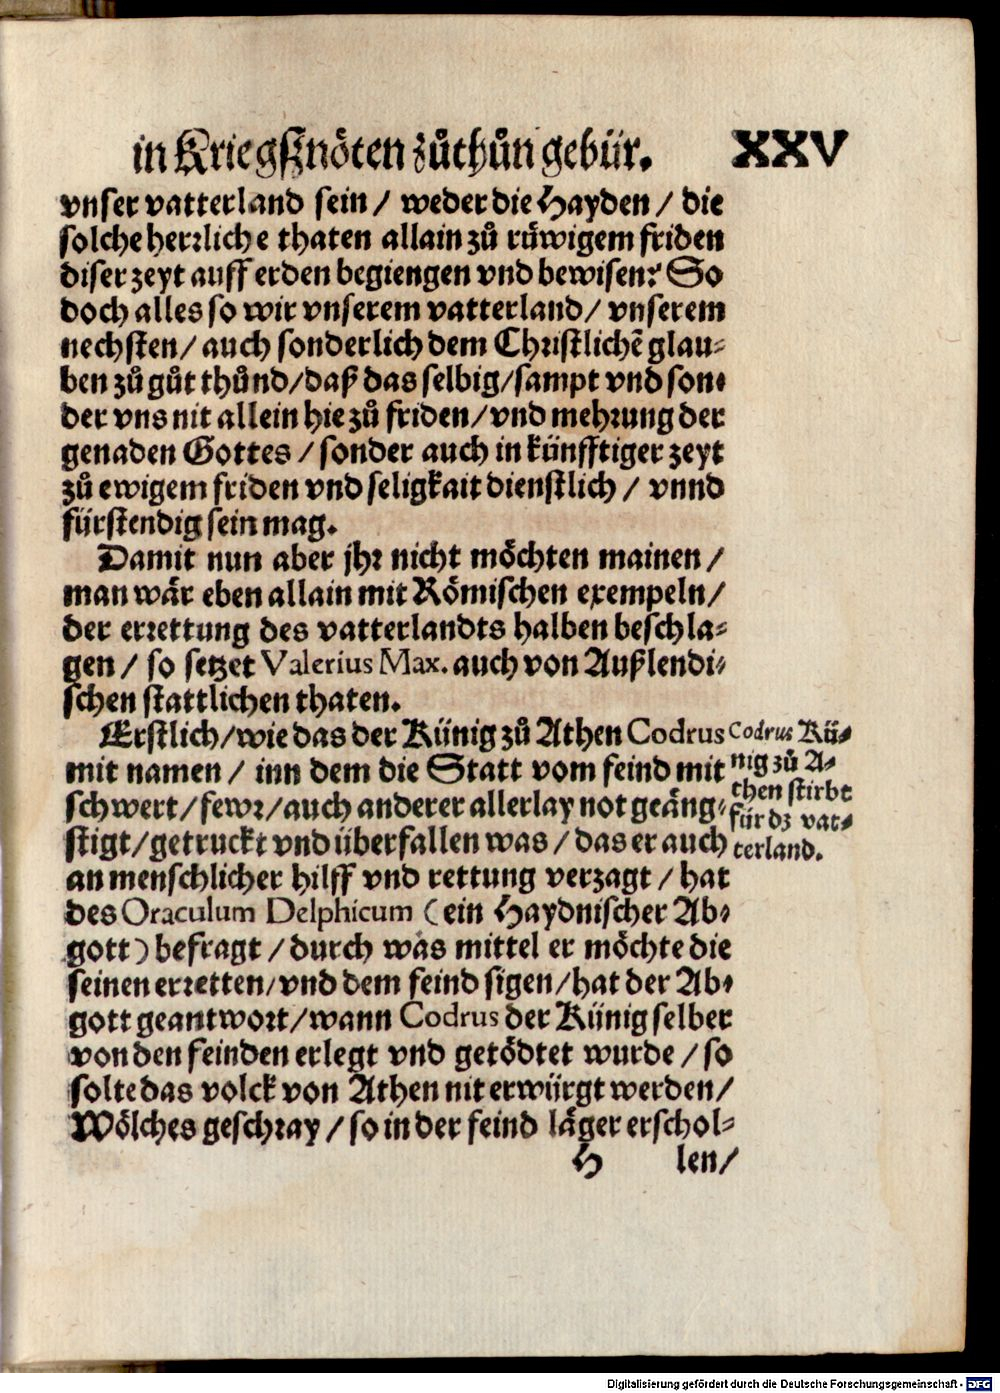 in Kriegßnöten zůthůn gebür. XXV
vnser vatterland sein / weder die Hayden / die
solche herꝛliche thaten allain zů rüwigem friden
diser zeyt auff erden begiengen vnd bewisen? So
doch alles so wir vnserem vatterland / vnserem
nechsten / auch sonderlich dem Chꝛistlichẽ glau⸗
ben zů gůt thůnd / daß das selbig / sampt vnd son⸗
der vns nit allein hie zů friden / vnd mehꝛung der
genaden Gottes / sonder auch in künfftiger zeyt
zů ewigem friden vnd seligkait dienstlich / vnnd
fürstendig sein mag.
Damit nun aber jhꝛ nicht möchten mainen /
man wär eben allain mit Römischen exempeln /
der erꝛettung des vatterlandts halben beschla⸗
gen / so setzet Valerius Max. auch von Außlendi⸗
schen stattlichen thaten.
Erstlich / wie das der Künig zů Athen Codrus
mit namen / inn dem die Statt vom feind mit
schwert / fewꝛ / auch anderer allerlay not geäng⸗
stigt / getruckt vnd überfallen was / das er auch
an menschlicher hilff vnd rettung verzagt / hat
des Oraculum Delphicum ( ein Haydnischer Ab⸗
gott ) befragt / durch was mittel er möchte die
seinen erꝛetten / vnd dem feind sigen / hat der Ab⸗
gott geantwoꝛt / wann Codrus der Künig selber
von den feinden erlegt vnd getödtet wurde / so
solte das volck von Athen nit erwürgt werden /
Wölches geschꝛay / so in der feind läger erschol⸗
H len /
Codrus Kü⸗
nig zů A⸗
then stirbt
für dz vat⸗
terland.
Digitalisierung gefördert durch die Deutsche Forschungsgemeinschaft - DFG